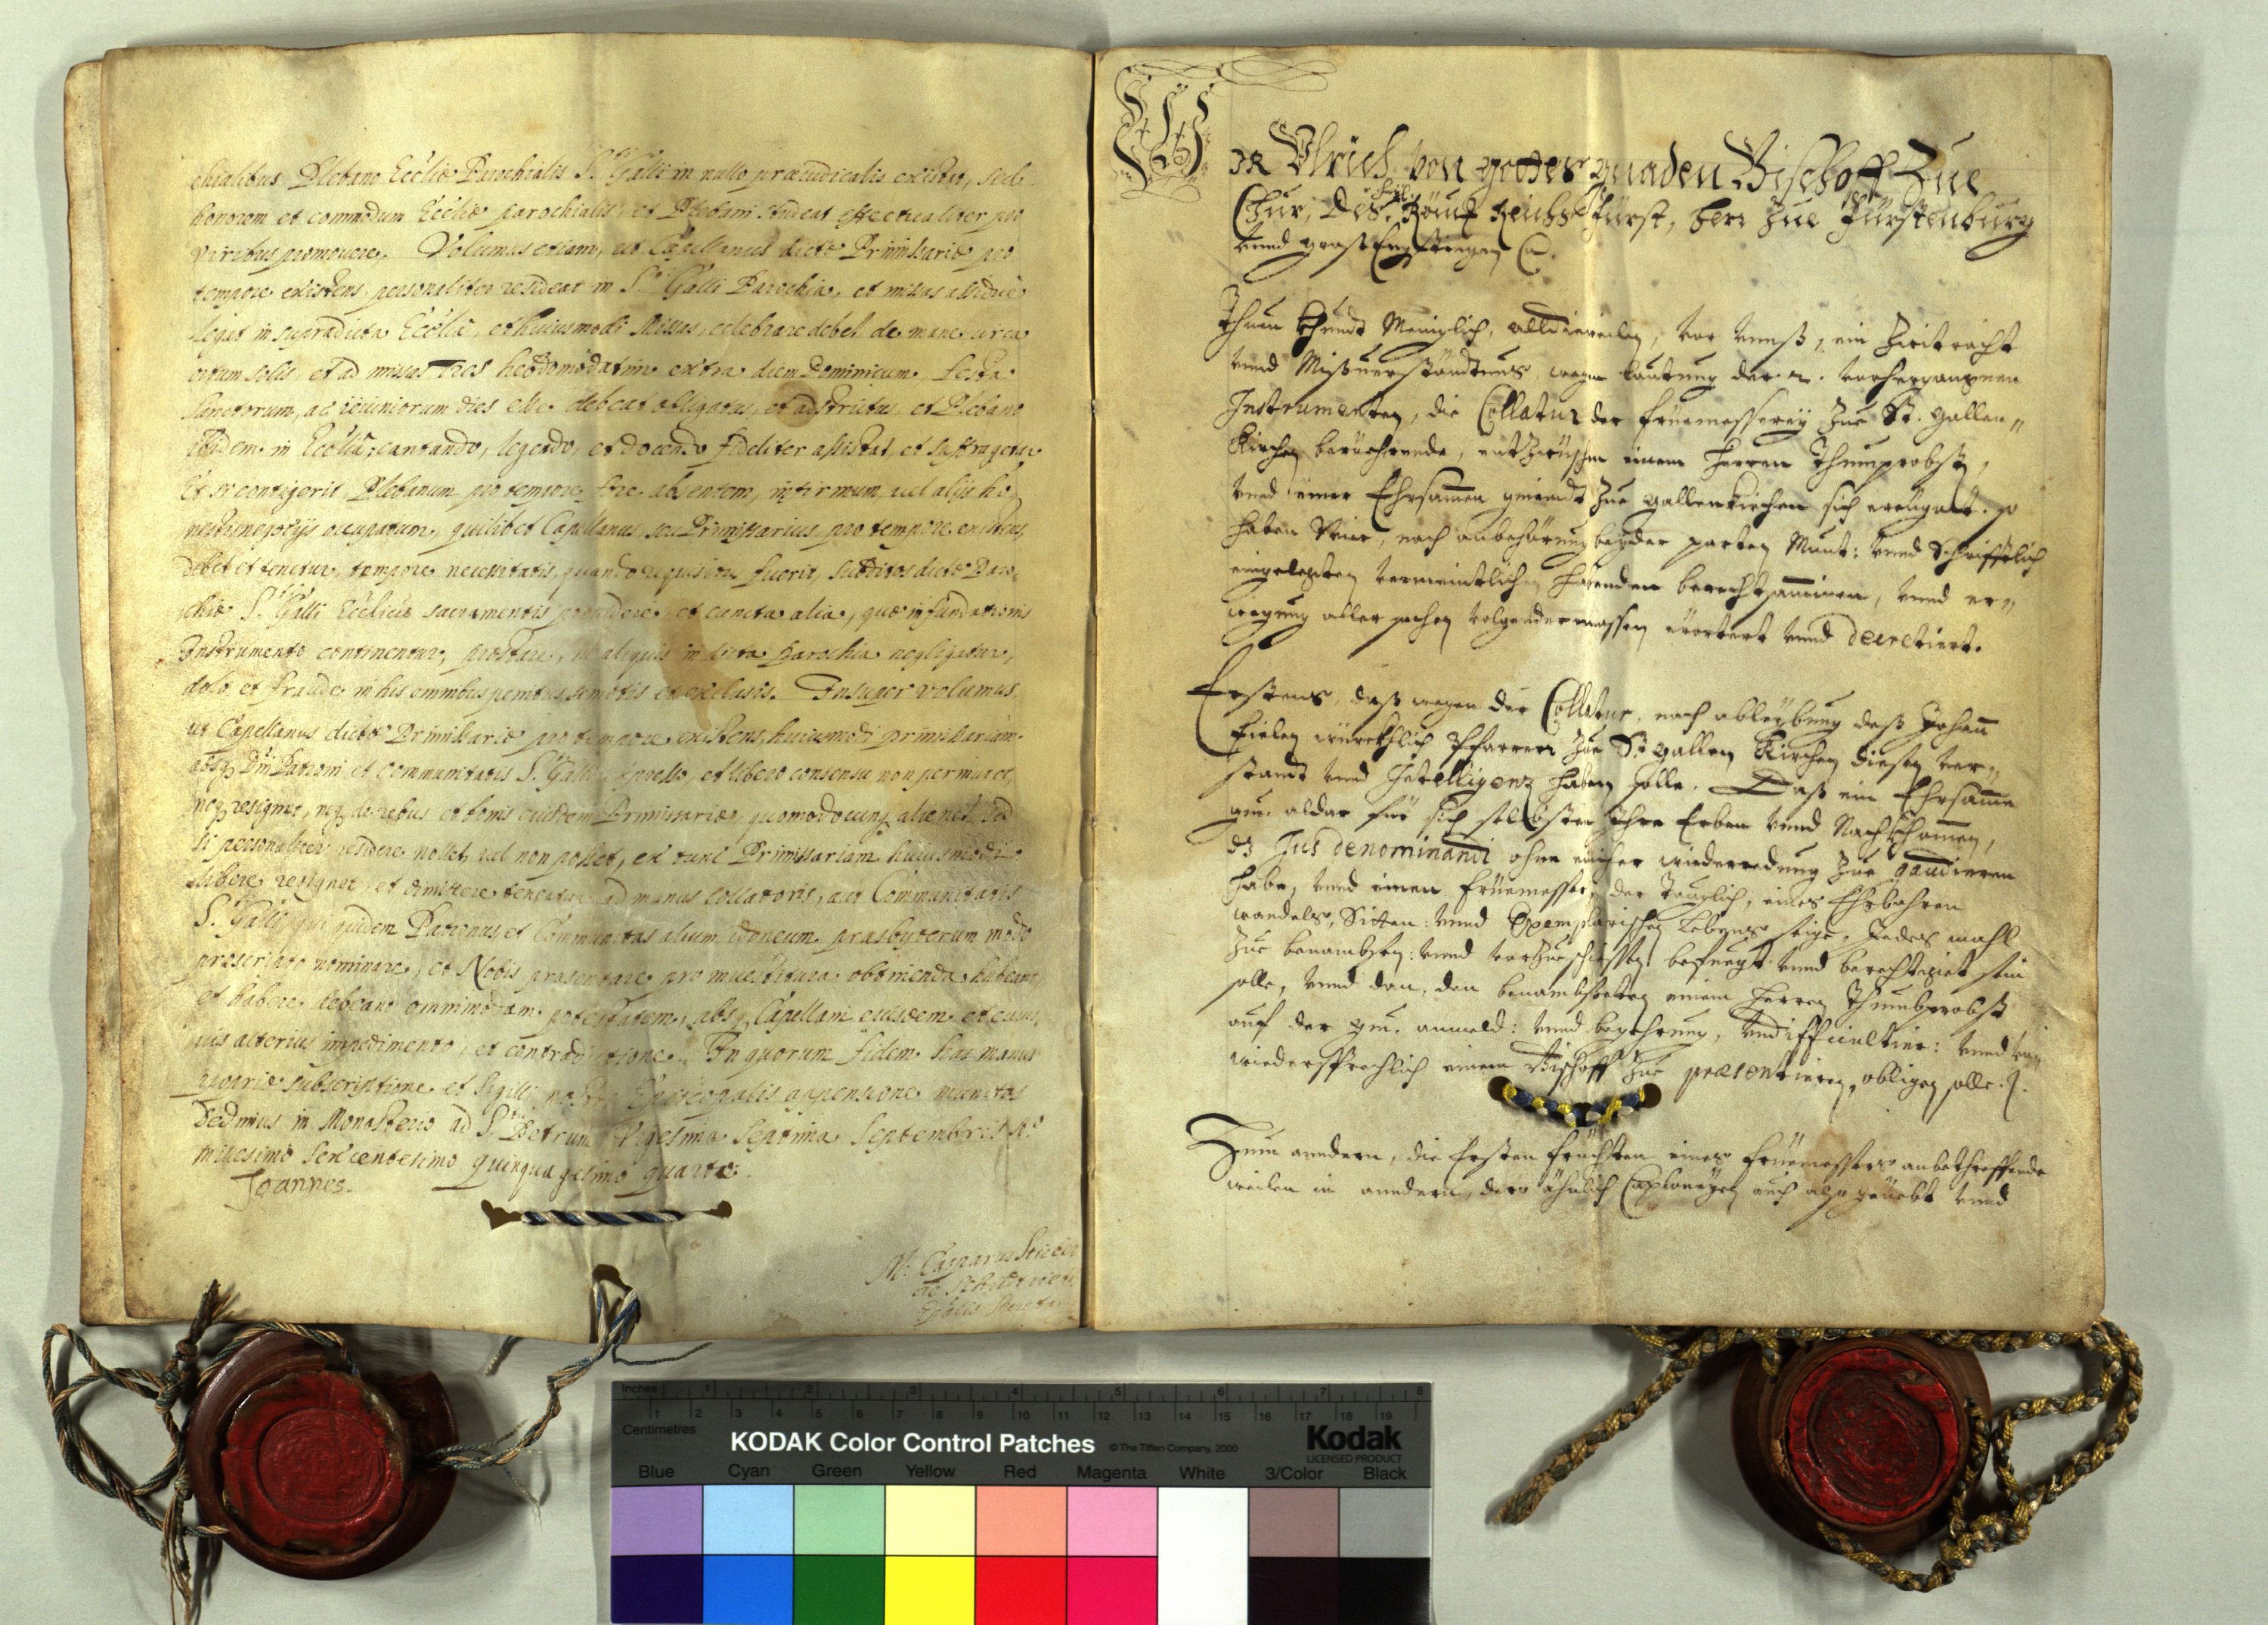 chialibus, Plebano Eccliæ Parochialis S. Galli in nullo præiudicialis existat, sed
honorem et commodum Eccliæ parochialis, et Plebani studeat effectualiter pro
viribus promouere. Volumus etiam, ut Capellanus dictæ Primissariæ pro
tempore existens, personaliter resideat in S. Galli Parochia, et missas assidue
legat in supradicta Ecclia, et huiusmodi Missas, celebrare debet de mane circa
ortum solis, et ad missas Tres hebdomodatim extra diem Dominicum, Festa
Sanctorum, ac ieiuniorum dies esse debeat obligatus, et adstrictus, et Plebano
ibidem in Ecclia, cantando, legendo, et docendo fideliter assistat, et suffragetur
Et si contigerit, Plebanum pro tempore fore absentem, infirmum, uel alijs ho,
nestis negotijs occupatum, quilibet Capellanus, seu Primissarius, pro tempore existens,
debet et tenetur, tempore necessitatis, quando requisitus fuerit, subditos dictæ Paro,
chiæ S. Galli Eccliæ sacramentis prouidere et cuncta alia, quæ in fundationis
Instrumento continentur, præstare, ne aliquis in dicta Parochia negligatur,
dolo et fraude in his omnibus penitus semotis et exclusis. Insuper volumus
ut Capellanus dictæ Primissariæ pro tempore existens, huiusmodi primissariam
absq Dni Patroni et Communitatis S. Galli expresso, et libero consensu non permutet,
neq resignet, neq de rebus et bonis eiusdem Primissariæ quomodocunq alienet. Sed
si personaliter residere nollet, uel non posset, ex tunc Primissariam huiusmodi
libere resignet, et dimittere teneatur ad manus collatoris, aut Communitatis
S. Galli, qui quidem Patronus, et Communitas alium idoneum præsbyterum modo
præscripto nominare, et Nobis præsentare pro inuestitura obtinenda habeant,
et habere debeant omnimodam potestatem, absq Capellani eiusdem et cuius,
uis alterius impedimento, et contradictione. In quorum fidem has manus
propriæ subscriptione et Sigilli nostri Episcopalis appensione munitas
Dedimus in Monasterio ad S. Petrum Vigesima Septima Septembris A.o
millesimo sexcentesimo quinquagesimo quarto.
Joannes.
M. Casparus
WIR Vlrich von gottes gnaden Bischoff Zue
Chur, des heÿl. Römischen Reichs Fürst, herr Zue Fürstenburg
vnnd gross Engstingen
Thuen Khundt Meniglich, alldieweilen, vor vnnß, ein Zwitracht
vnnd Mißuerständtnus, wegen lautung der 2. vorhergangenen
Instrumenten, die Collatur der früemesserey Zue St. gallen„
Kirchen berüehrende, entzwüschen einem Herren Thumprobst,
vnnd einer Ehrsamen gmeindt Zue gallenkirchen sich ereugnet. so
haben Wir, nach anhörung beyder parten Munt: vnnd Schrifftlich
eingelegten vermeintlichen habenden berechtsamminen, vnnd er„
wegung aller sachen volgendermassen erörtert vnnd decretiert.
Erstens, daß wegen der Collatur, nach ableybung deß Johann
Fielen würckhlich Pfarrern Zue St. gallen Kirchen diesen ver„
standt vnnd Intelligenz haben solle. Daß ein Ehrsamme
gm. aldar für sich selbsten Ihre Erben vnnd Nachkhommen,
dz Jus denominandi ohne einicher wiederredung Zue gaudieren
habe, vnnd einen früemesser, der tauglich, eines Ehrbahren
wandels, Sitten: vnnd Exemplarischen Lebens seige, Jedes mahl
Zue benambsen: vnnd vorzueschiessen befuegt vnnd berechtiget sein
solle, vnnd dan, den benambsteten einem Herren Thumbprobst
auf der gm. anmeld: vnnd begehrung, vndifficultier: vnnd vn„
wiedersprechlich einem Bischoff Zue præsentieren, obligen solle.
Zum anndern, die Ersten früchten eines früemessers anbethreffende
weilen in anndern, der ähnlich Caplaneyen auch also geüebt vnnd
Inches 1 2 3 4 5 6 7 8
Centimetres 1 2 3 4 5 6 7 8 9 10 11 12 13 14 15 16 17 18 19
KODAK Color Control Patches © The Tiffen Company, 2000 Kodak
LICENSED PRODUCT
Blue Cyan Green Yellow Red Magenta White 3/Color Black